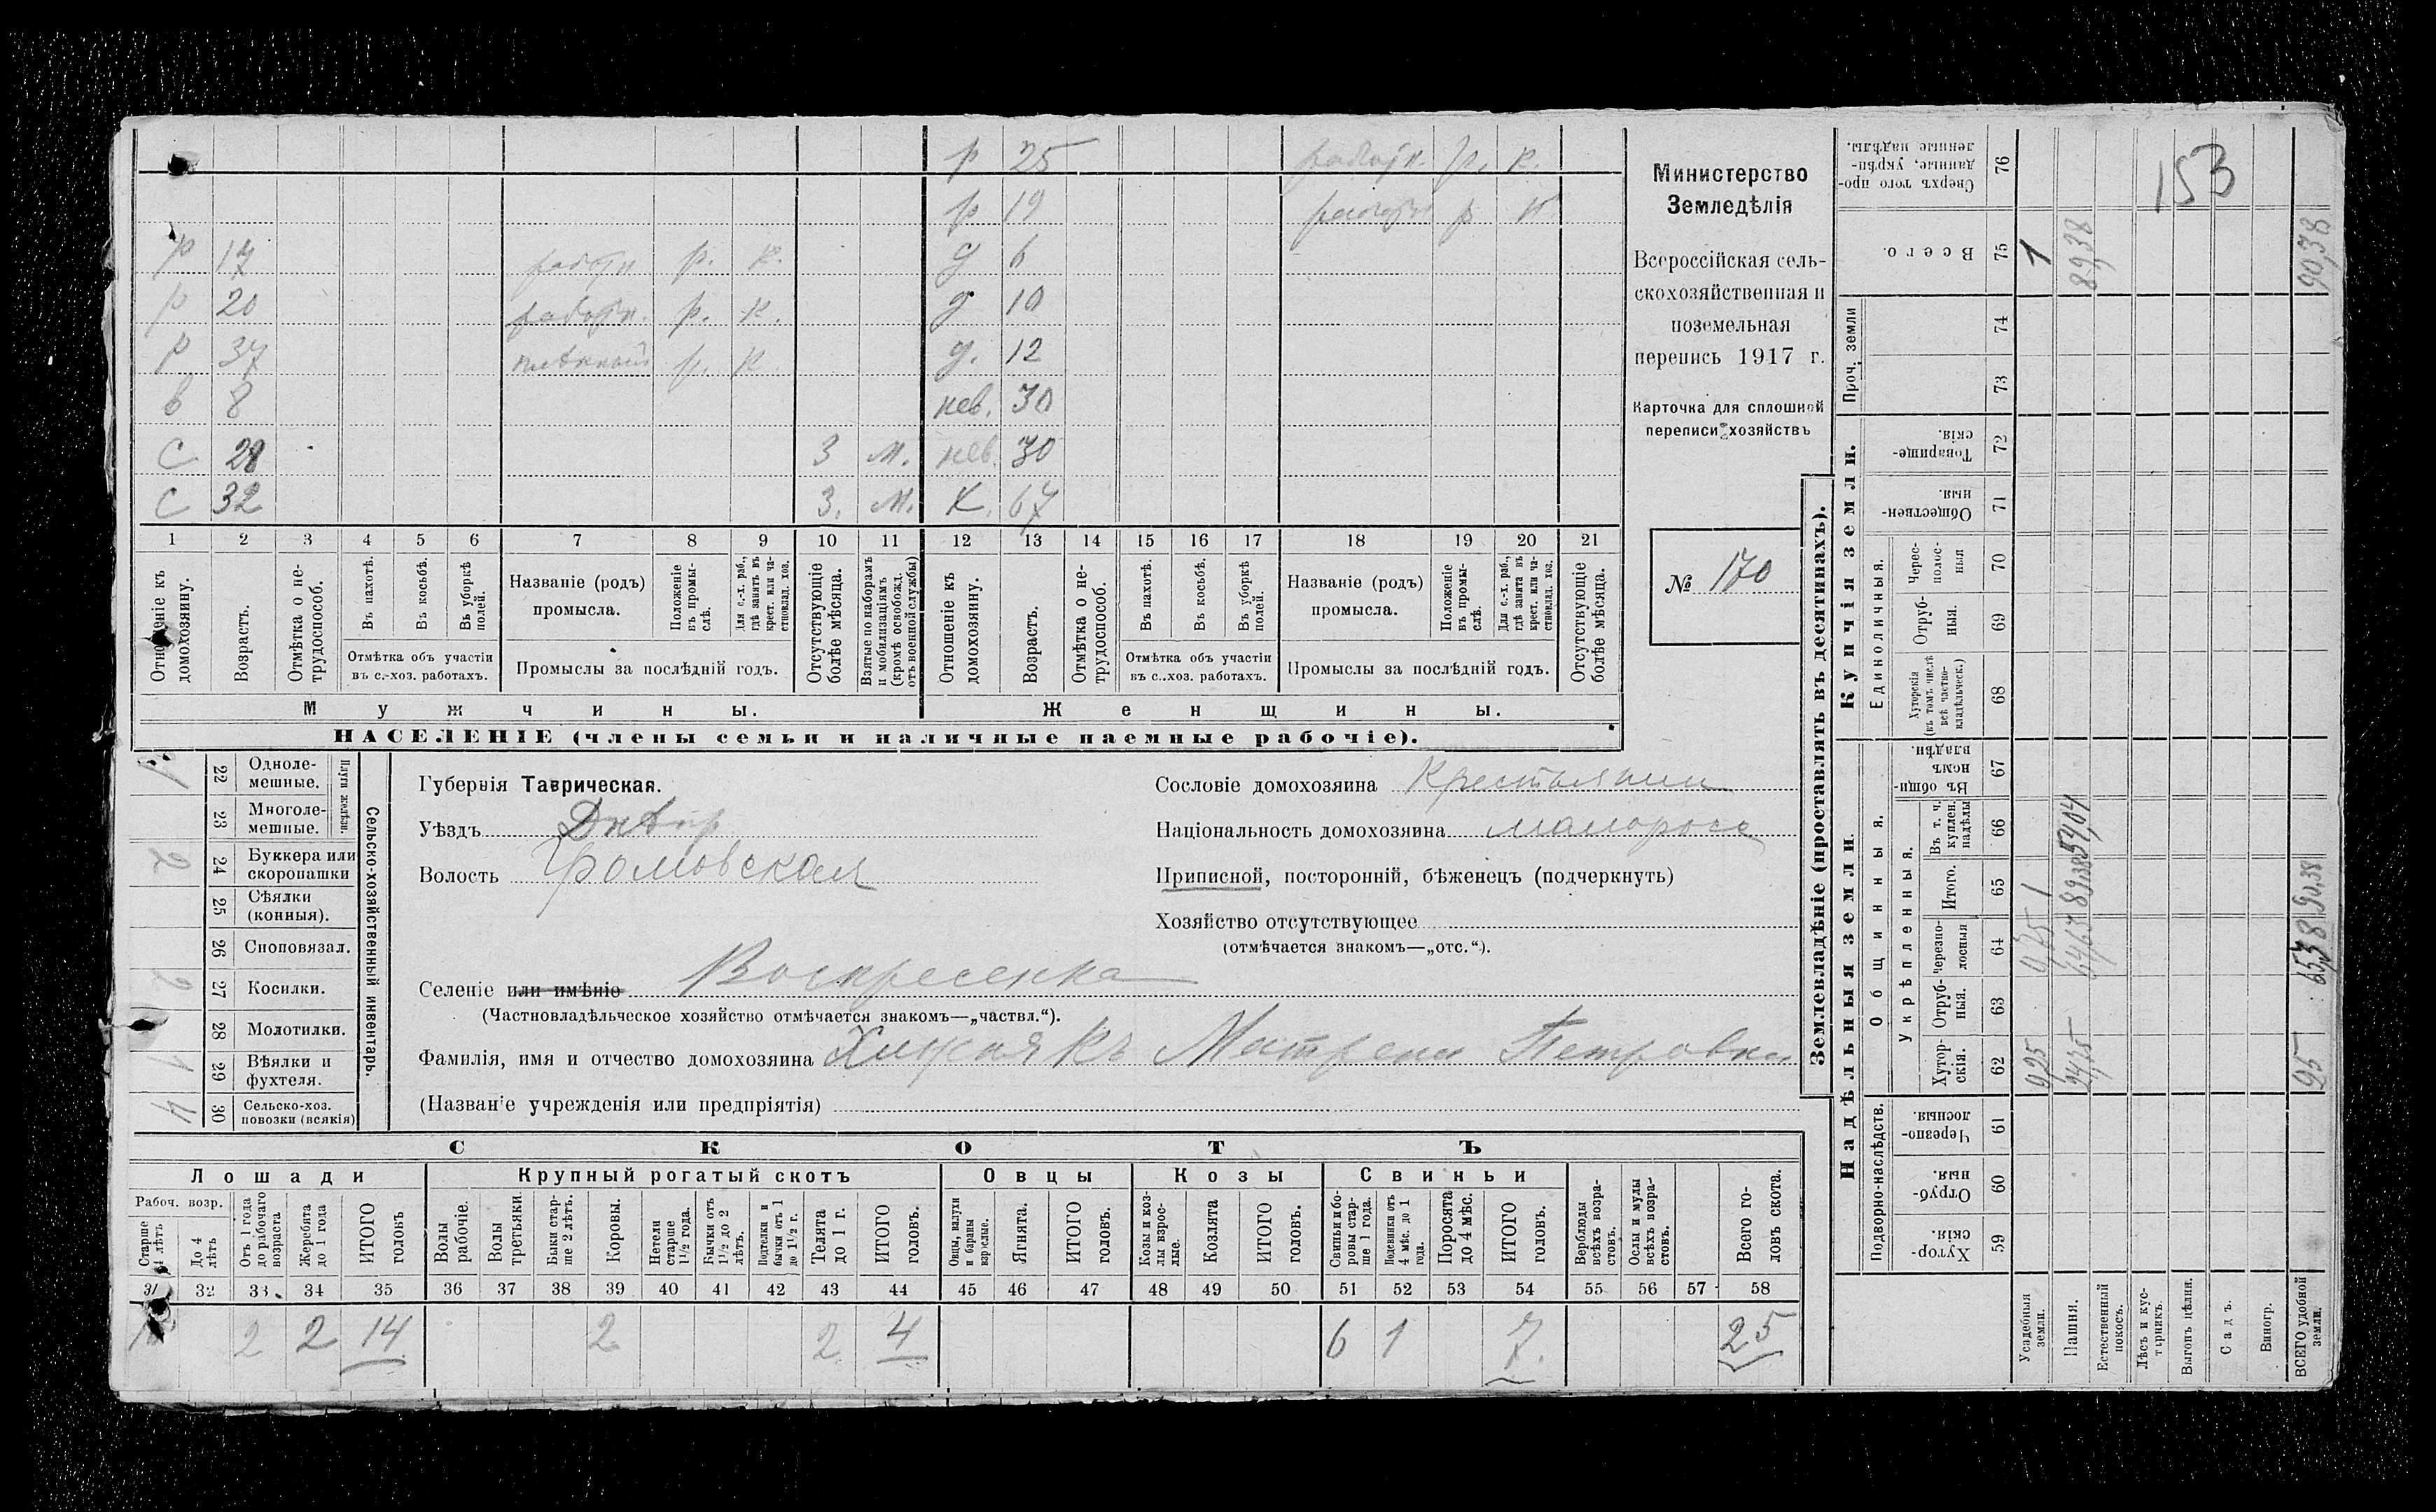 р 25 р. к.
р 19 р к
Р 17 р. к. д 6
р 20 р. к. д 10
Р 37 р. к д. 12
в 8 нев. 30
С 28 3 м. нев. 30
С 32 3. м. К. 67
1 2 3 4 5 6 7 8 9 10 11 12 13 14 15 16 17 18 19 20 21
Отношеніе къ домохозяину.
Возрастъ.
Отмѣтка о не-трудоспособ.
Въ пахотѣ.
Въ косьбѣ.
Въ уборкѣ полей.
Отмѣтка объ участіи
въ с.-хоз. работахъ.
Названіе (родъ)
промысла.
Положеніе въ промы-слѣ.
Для с.-х. раб., гдѣ занятъ въ крест. или ча-стновлад. хоз.
Промыслы за послѣдній годъ.
Отсутствующіе болѣе мѣсяца.
Взятые по наборамъ и мобилизаціямъ (кромѣ освобожд. отъ военной службы)
Отношеніе къ домохозяину.
Возрастъ.
Отмѣтка о не-трудоспособ.
Въ пахотѣ.
Въ косьбѣ.
Въ уборкѣ полей.
Отмѣтка объ участіи
въ с..хоз. работахъ.
Названіе (родъ)
промысла.
Положеніе въ промы-слѣ.
Для с.-х. раб., гдѣ занята въ крест. или ча-стновлад. хоз.
Промыслы за послѣдній годъ.
Отсутствующіе болѣе мѣсяца.
Мужчины. Женщины.
НАСЕЛЕНІЕ (члены семьи и наличные наемные рабочіе).
Министерство
Земледѣлія
Всероссійская сель-
скохозяйственная и
поземельная
перепись 1917 г.
Карточка для сплошной
переписи хозяйствъ
№ 170
22 Одноле-мешные.
23 Многоле-мешные.
Плуги желѣзн.
2 24 Буккера или скоропашки
25 Сѣялки (конныя).
26 Сноповязал.
2 27 Косилки.
28 Молотилки.
1 29 Вѣялки и фухтеля.
4 30 Сельско-хоз. повозки (всякія)
Сельско-хозяйственный инвентарь.
Губернія Таврическая.
Уѣздъ Днѣпр
Волость Громовская
Сословіе домохозяина Крестьянин
Національность домохозяина малоросс
Приписной, посторонній, бѣженецъ (подчеркнуть)
Хозяйство отсутствующее
(отмѣчается знакомъ—„отс.“).
Селеніе или имѣніе Воскресенка
(Частновладѣльческое хозяйство отмѣчается знакомъ—„частвл.“).
Фамилія, имя и отчество домохозяина Хижнякъ Матрена Петровна
(Названіе учрежденія или предпріятія)
СКОТЪ
Лошади Крупный рогатый скотъ Овцы Козы Свиньи
Рабоч. возр.
Старше 4 лѣтъ
До 4 лѣтъ
Отъ 1 года до рабочаго возраста
Жеребята до 1 года
ИТОГО головъ
Волы рабочіе.
Волы третьяки.
Быки стар-ше 2 лѣтъ.
Коровы.
Нетели старше 1½ года.
Бычки отъ 1½ до 2 лѣтъ.
Подтелки и бычки отъ 1 до 1½ г.
Телята до 1 г.
ИТОГО головъ.
Овцы, валухи и бараны взрослые.
Ягнята.
ИТОГО головъ.
Козы и коз-лы взрос-лые.
Козлята
ИТОГО головъ.
Свиньи и бо-ровы стар-ше 1 года.
Подсвинки отъ 4 мѣс. до 1 года.
Поросята до 4 мѣс.
ИТОГО головъ.
Верблюды всѣхъ возра-стовъ.
Ослы и мулы всѣхъ возра-стовъ.
Всего го-ловъ скота.
31 32 33 34 35 36 37 38 39 40 41 42 43 44 45 46 47 48 49 50 51 52 53 54 55 56 57 58
10 2 2 14 2 2 4 6 1 7. 25
Землевладѣніе (проставлять въ десятинахъ).
Надѣльныя земли Купчія земли.
Подворно-наслѣдств.
Общинныя.
Укрѣпленныя.
Единоличныя.
Проч. земли
Хутор-скія. 59
Отруб-ныя. 60
Черезпо-лосныя 61
Хутор-скія. 62
Отруб-ныя. 63
Черезпо-лосныя 64
Итого. 65
Въ т. ч. куплен. надѣлы 66
Въ общи-номъ владѣн. 67
Хуторскія (въ томъ числѣ всѣ частно-владѣльческ.) 68
Отруб-ныя. 69
Черес-полос-ныя 70
Обществен-ныя. 71
Товарище-скія. 72
73
74
Всего. 75
Сверхъ того про-данные, укрѣп-ленные надѣлы. 76
Усадебныя земли. 0,25 0,75 1 1
Пашня. 24,75 64,63 89,38 89,38
Естественный покосъ.
Лѣсъ и кус-тарникъ.
Выгонъ цѣлин.
Садъ.
Виногр.
ВСЕГО удобной земли. 25 65,38 90,38 90,38
153